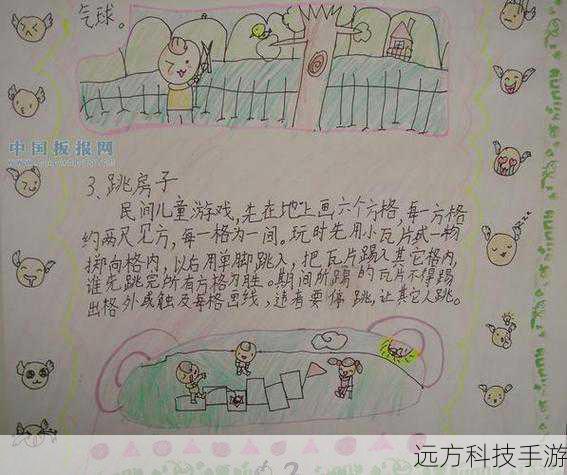 气球。
中国板报网
3、跳房子
民间儿童游戏,先在地上画六个方格,每一方格
约两尺见方,每一格为一间。玩时先用小瓦片或一物
掷向格内,以后用单脚跳入,把瓦片踢入其它格内,
谁先跳完所有方格为胜。期间所踢的瓦片不得踢
出格外或触及每格画线,违者要停跳,让其它人跳。
远方科技手游